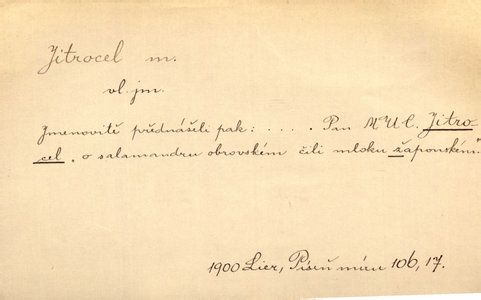 Jitrocel m.
vl. jm.
Jmenovitě přednášeli pak: . . . . Pan MUC. Jitro-
cel „o salamandru obrovském čili mloku žaponském“
1900 Lier, Písně míru 106, 17.